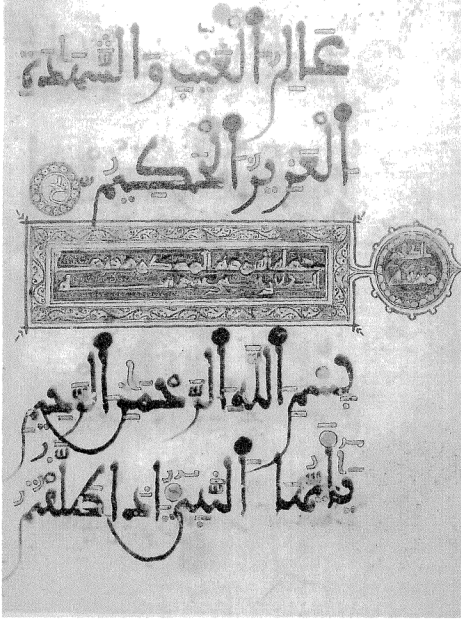 عالم الغيب والشهدة
العزيز الحكيم
بسم الله الرحمن الرحيم
يأيها النبي إذا طلقتم